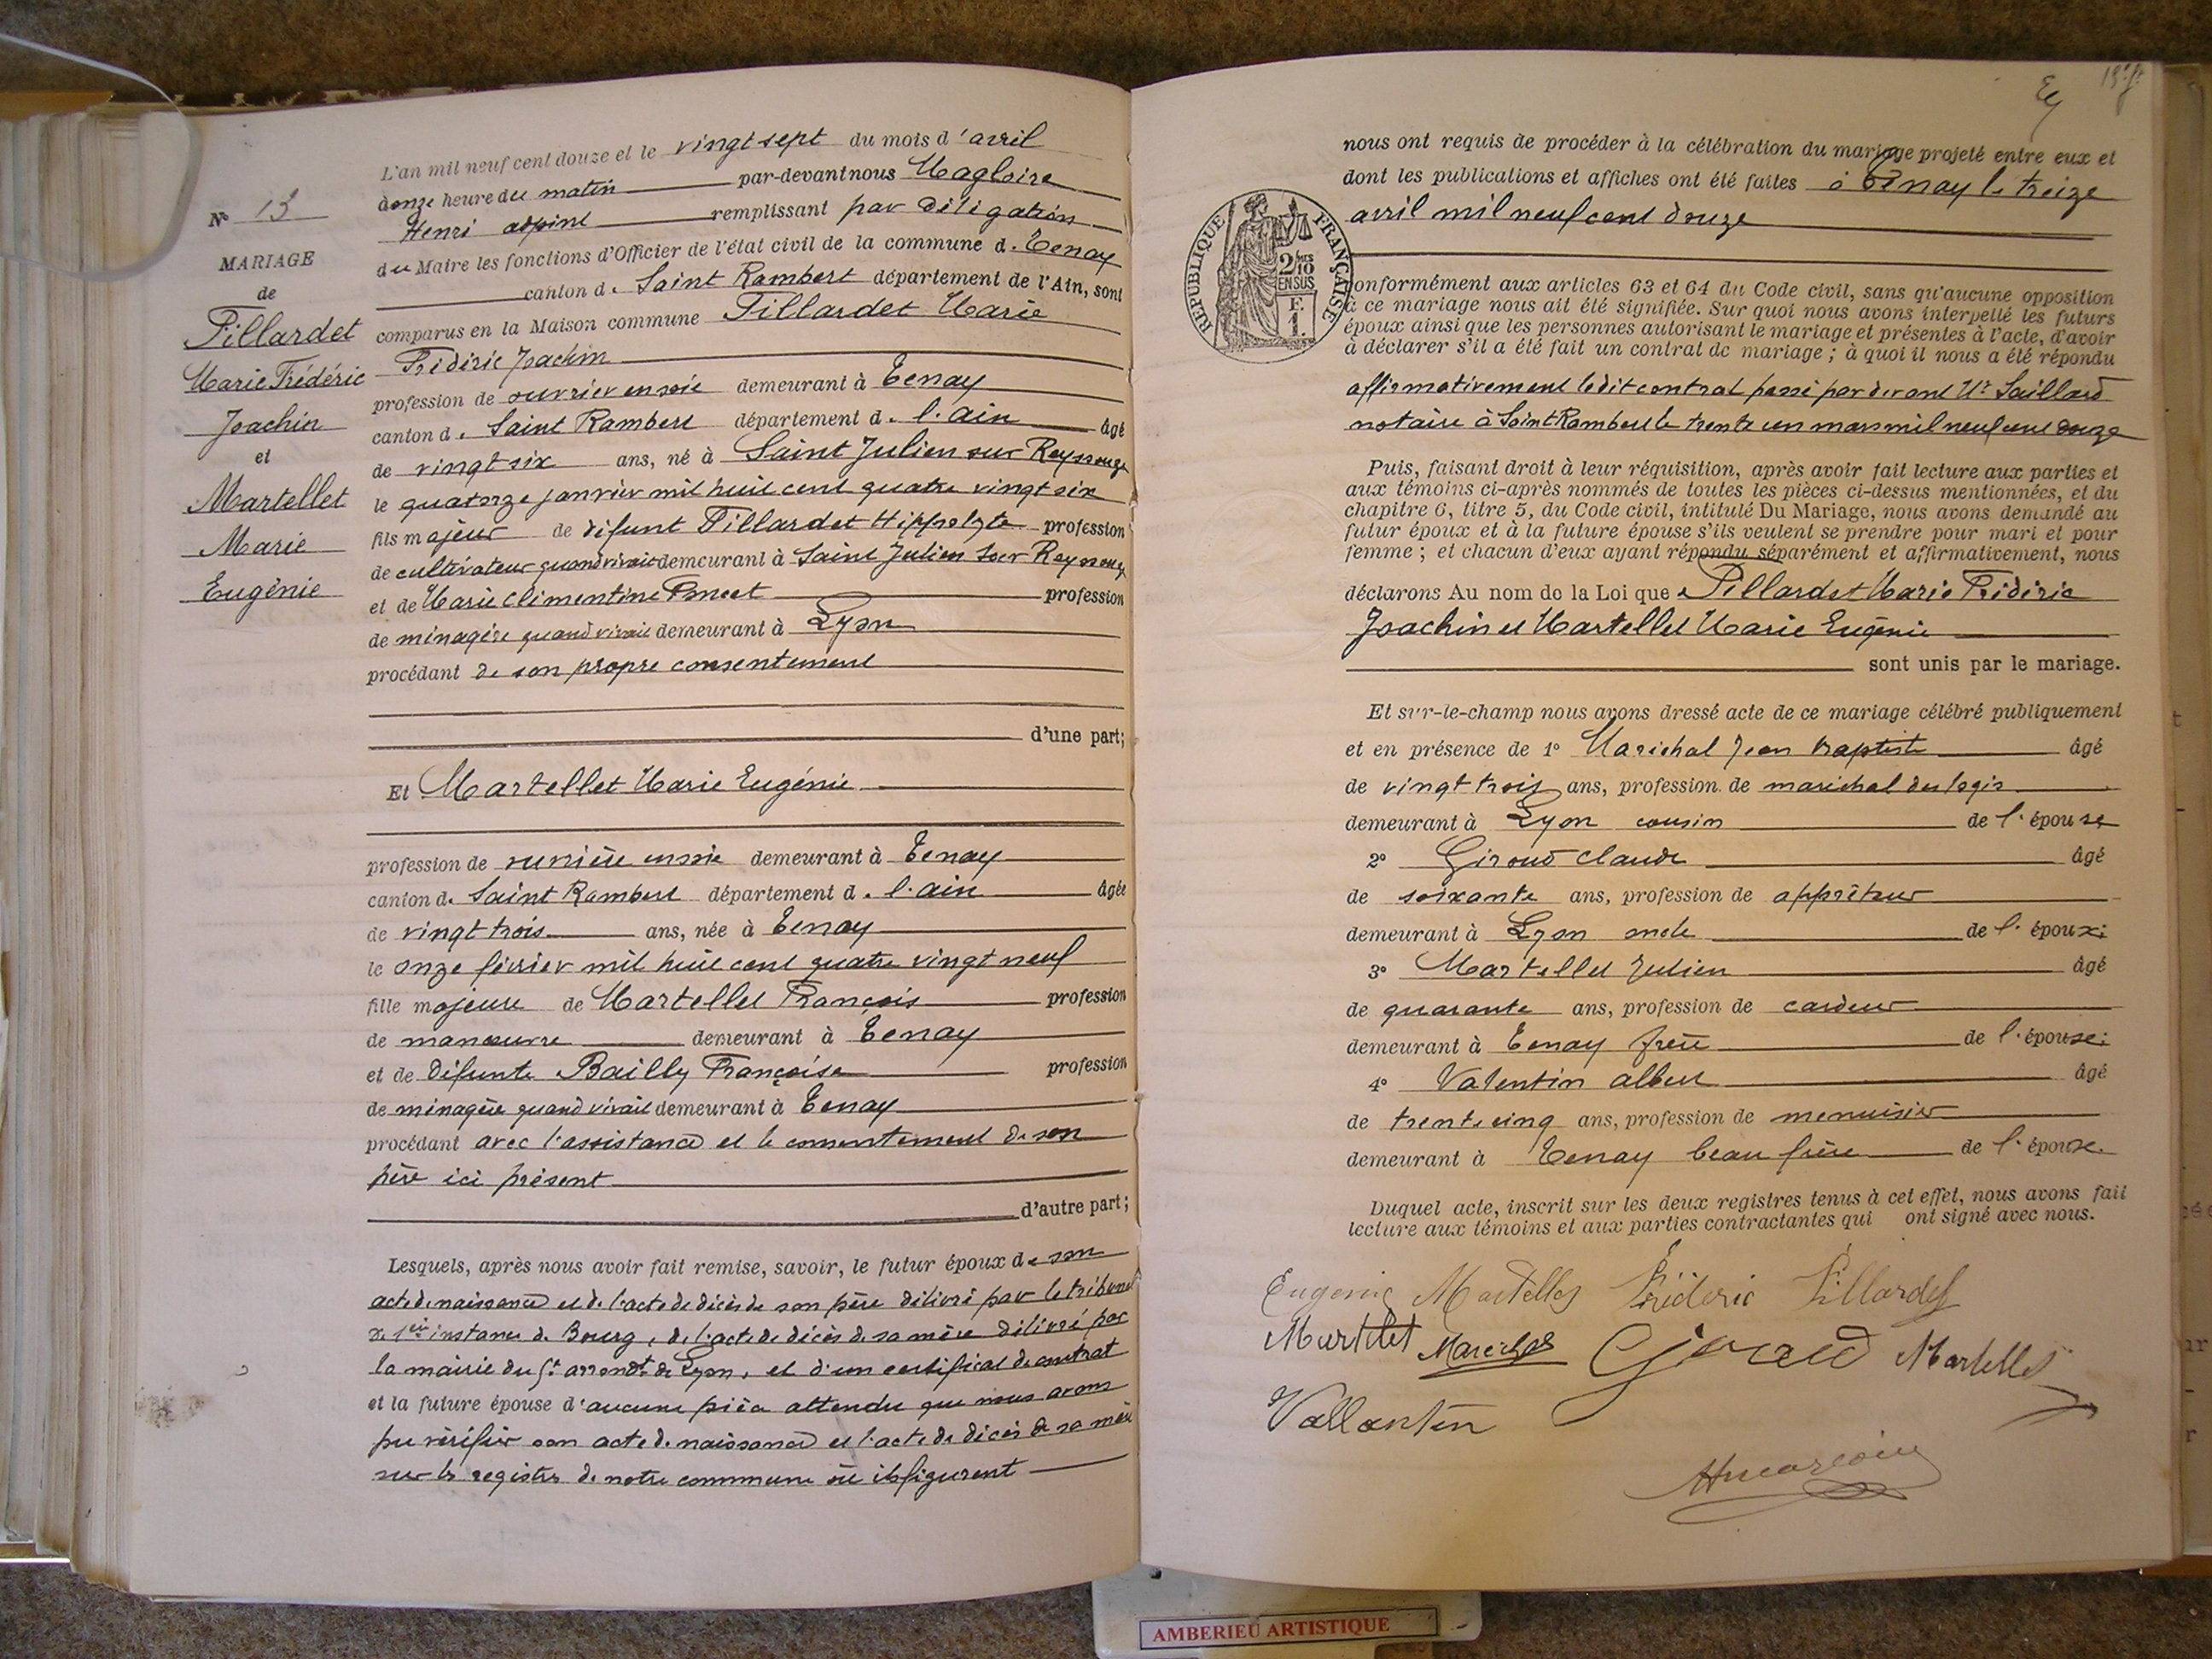 N° 13
MARIAGE
de
Pillardet
Marie Frédéric
Joachin
et
Martellet
Marie
Eugénie
L'an mil neuf cent douze et le vingt sept du mois d'avril
à onze heure du matin par-devant nous Magloire
Henri remplissant par déligation
du Maire les fonctions d'Officier de l'état civil de la commune de Tenay
canton de Saint Rambert département de l'Ain, sont
comparus en la Maison commune Pillardet Marie
Frédéric Joachin
profession de ouvrier en soie demeurant à Tenay
canton de Saint Rambert département de l'ain âgé
de vingt six ans, né à Saint Julien sur Reyssouze
le quatorze janvier mil huit cent quatre vingt six
fils majeur de défunt Pillardet Hippolyte profession
de cultivateur quand vivait demeurant à Saint Julien sur Reyssouze
et de Marie Clémentine profession
de ménagère quand vivait demeurant à Lyon
procédant de son propre consentement
d'une part;
Et Martellet Marie Eugénie
profession de ouvrière en soie demeurant à Tenay
canton de Saint Rambert département de l'ain âgée
de vingt trois ans, née à Tenay
le onze février mil huit cent quatre vingt neuf
fille majeure de Martellet François profession
de manœuvre demeurant à Tenay
et de défunte Bailly Françoise profession
de ménagère quand vivait demeurant à Tenay
procédant avec l'assistance et le consentement de son
père ici présent
d'autre part;
Lesquels, après nous avoir fait remise, savoir, le futur époux de son
acte de naissance et de l'acte de décès de son père délivré par le tribunal
de 1ère instance de Bourg, de l'acte de décès de sa mère délivré par
la mairie du 5t arrondt de Lyon, et d'un certificat de contrat
et la future épouse d'aucune pièce attendu que nous avons
pu vérifier son acte de naissance et l'acte de décès de sa mère
sur les registres de notre commune où ils figurent
nous ont requis de procéder à la célébration du mariage projeté entre eux et
dont les publications et affiches ont été faites à Tenay le treize
avril mil neuf cent douze
RÉPUBLIQUE FRANÇAISE
2/10
EN SUS
F.
1.
conformément aux articles 63 et 64 du Code civil, sans qu'aucune opposition
à ce mariage nous ait été signifiée. Sur quoi nous avons interpellé les futurs
époux ainsi que les personnes autorisant le mariage et présentes à l'acte, d'avoir
à déclarer s'il a été fait un contrat de mariage; à quoi il nous a été répondu
affirmativement ledit contrat passé par devant Me Saillard
notaire à Saint Rambert le trente un mars mil neuf cent douze
Puis, faisant droit à leur réquisition, après avoir fait lecture aux parties et
aux témoins ci-après nommés de toutes les pièces ci-dessus mentionnées, et du
chapitre 6, titre 5, du Code civil, intitulé Du Mariage, nous avons demandé au
futur époux et à la future épouse s'ils veulent se prendre pour mari et pour
femme; et chacun d'eux ayant répondu séparément et affirmativement, nous
déclarons Au nom de la Loi que Pillardet Marie Frédéric
Joachin et Martellet Marie Eugénie
sont unis par le mariage.
Et sur-le-champ nous avons dressé acte de ce mariage célébré publiquement
et en présence de 1° Maréchal Jean Baptiste âgé
de vingt trois ans, profession de maréchal des logis
demeurant à Lyon cousin de l'épouse
2° Giroud Claude âgé
de soixante ans, profession de apprêteur
demeurant à Lyon oncle de l'époux;
3° Martellet Julien âgé
de quarante ans, profession de cardeur
demeurant à Tenay frère de l'épouse;
4° Valentin albert âgé
de trente cinq ans, profession de menuisier
demeurant à Tenay beau frère de l'épouse.
Duquel acte, inscrit sur les deux registres tenus à cet effet, nous avons fait
lecture aux témoins et aux parties contractantes qui ont signé avec nous.
Eugenie Martellet Fréderic Pillardet
Martelet Marechal Giroud Martellet
Vallantin
AMBERIEU ARTISTIQUE